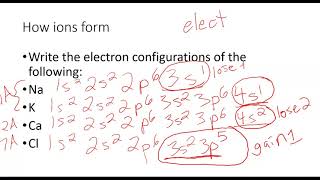 How ions form
elect
•Write the electron configurations of the
following:
1A •Na 1s² 2s² 2p⁶ 3s¹ lose 1
•K 1s² 2s² 2p⁶ 3s² 3p⁶ 4s¹
2A •Ca 1s² 2s² 2p⁶ 3s² 3p⁶ 4s² lose 2
7A •Cl 1s² 2s² 2p⁶ 3s² 3p⁵ gain 1